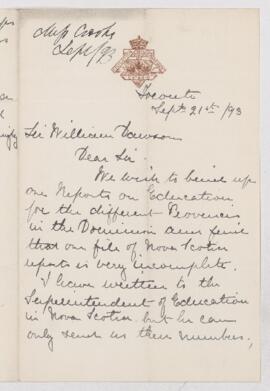 Miss Cooke
Sept /93
Toronto
Sept 21st /93
Sir William Dawson
Dear Sir
We wish to bind up
our Reports on Education
for the different Provinces
in the Dominion and find
that our file of Nova Scotia
reports is very incomplete.
I have written to the
Superintendent of Education
in Nova Scotia but he can
only send us three numbers,